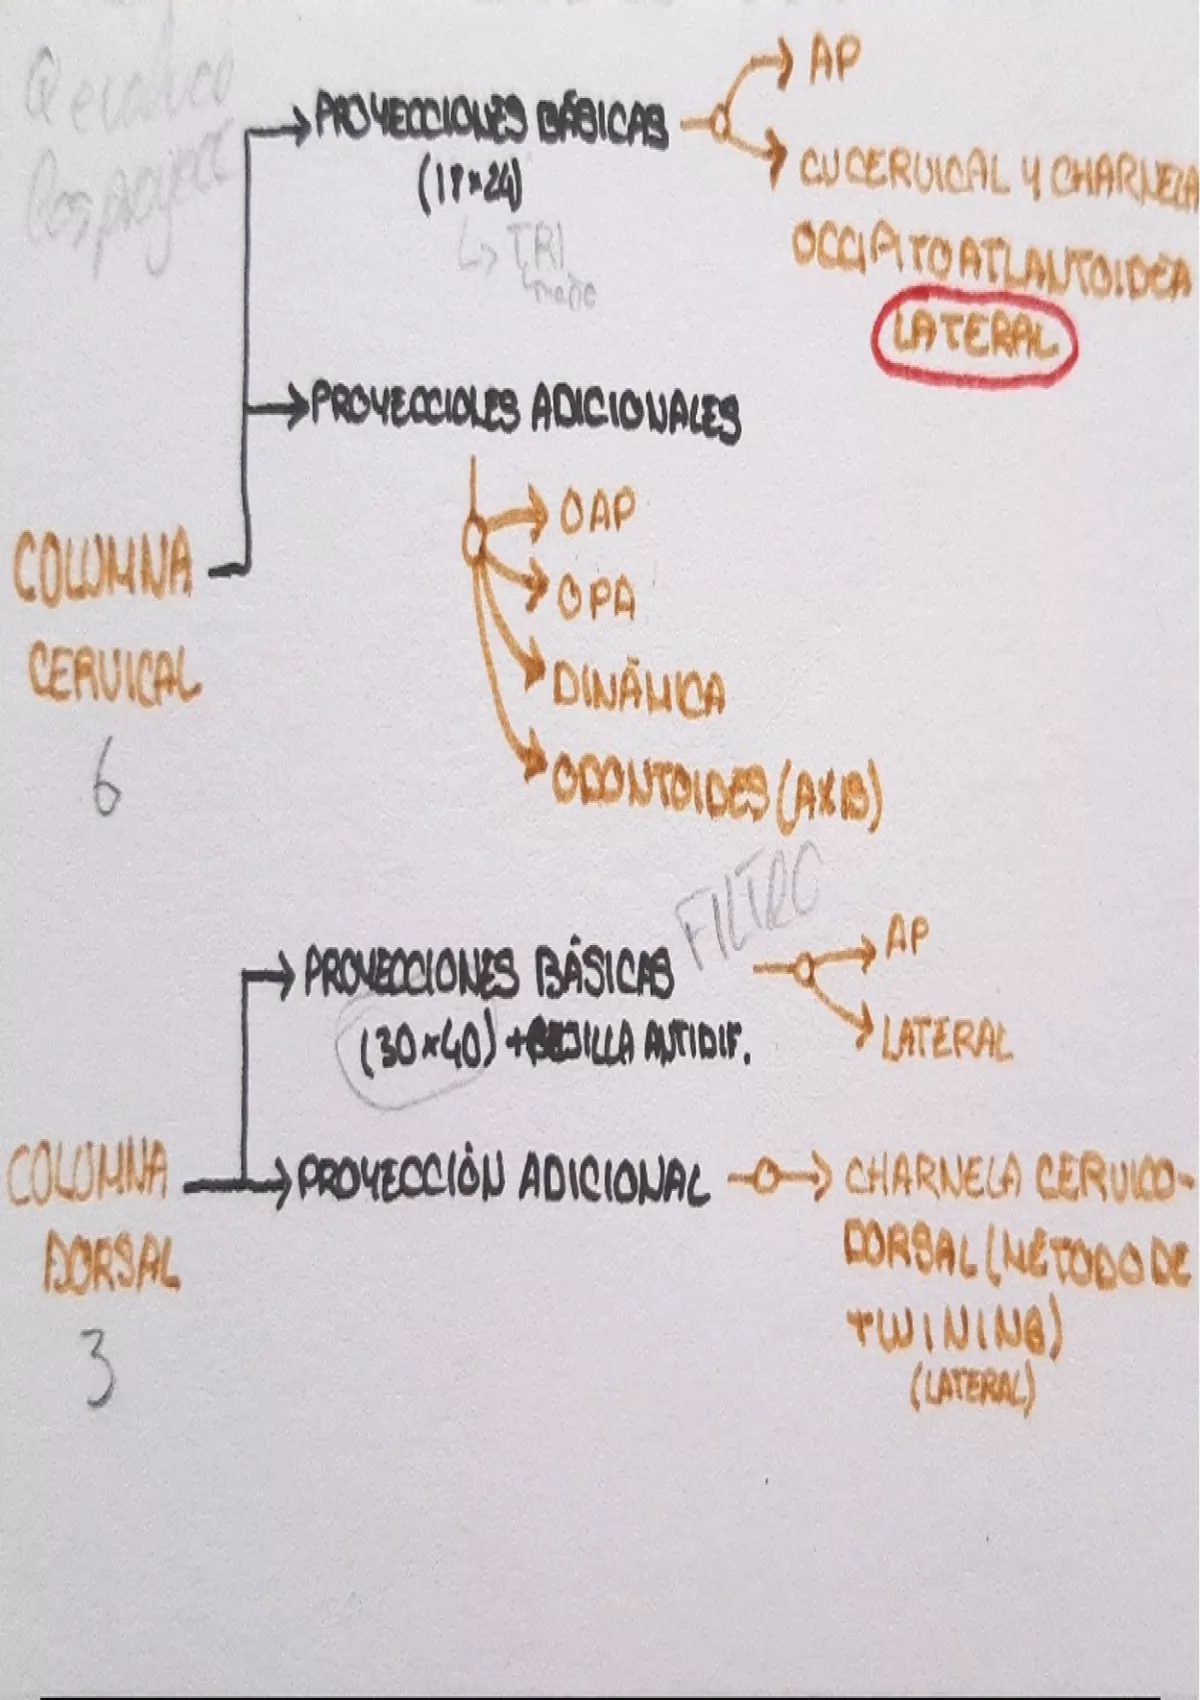 PROYECCIONES BÁSICAS
(18x24)
↳ TRI
AP
CU CERVICAL Y CHARNELA
OCCIPITOATLANTOIDEA
LATERAL
PROYECCIONES ADICIONALES
OAP
OPA
DINÁMICA
ODONTOIDES (AXIS)
COLUMNA
CERVICAL
6
FILTRO
PROYECCIONES BÁSICAS
(30x40) + REJILLA ANTIDIF.
AP
LATERAL
COLUMNA
DORSAL
3
PROYECCIÓN ADICIONAL
CHARNELA CERVICO-
DORSAL (MÉTODO DE
TWINING)
(LATERAL)